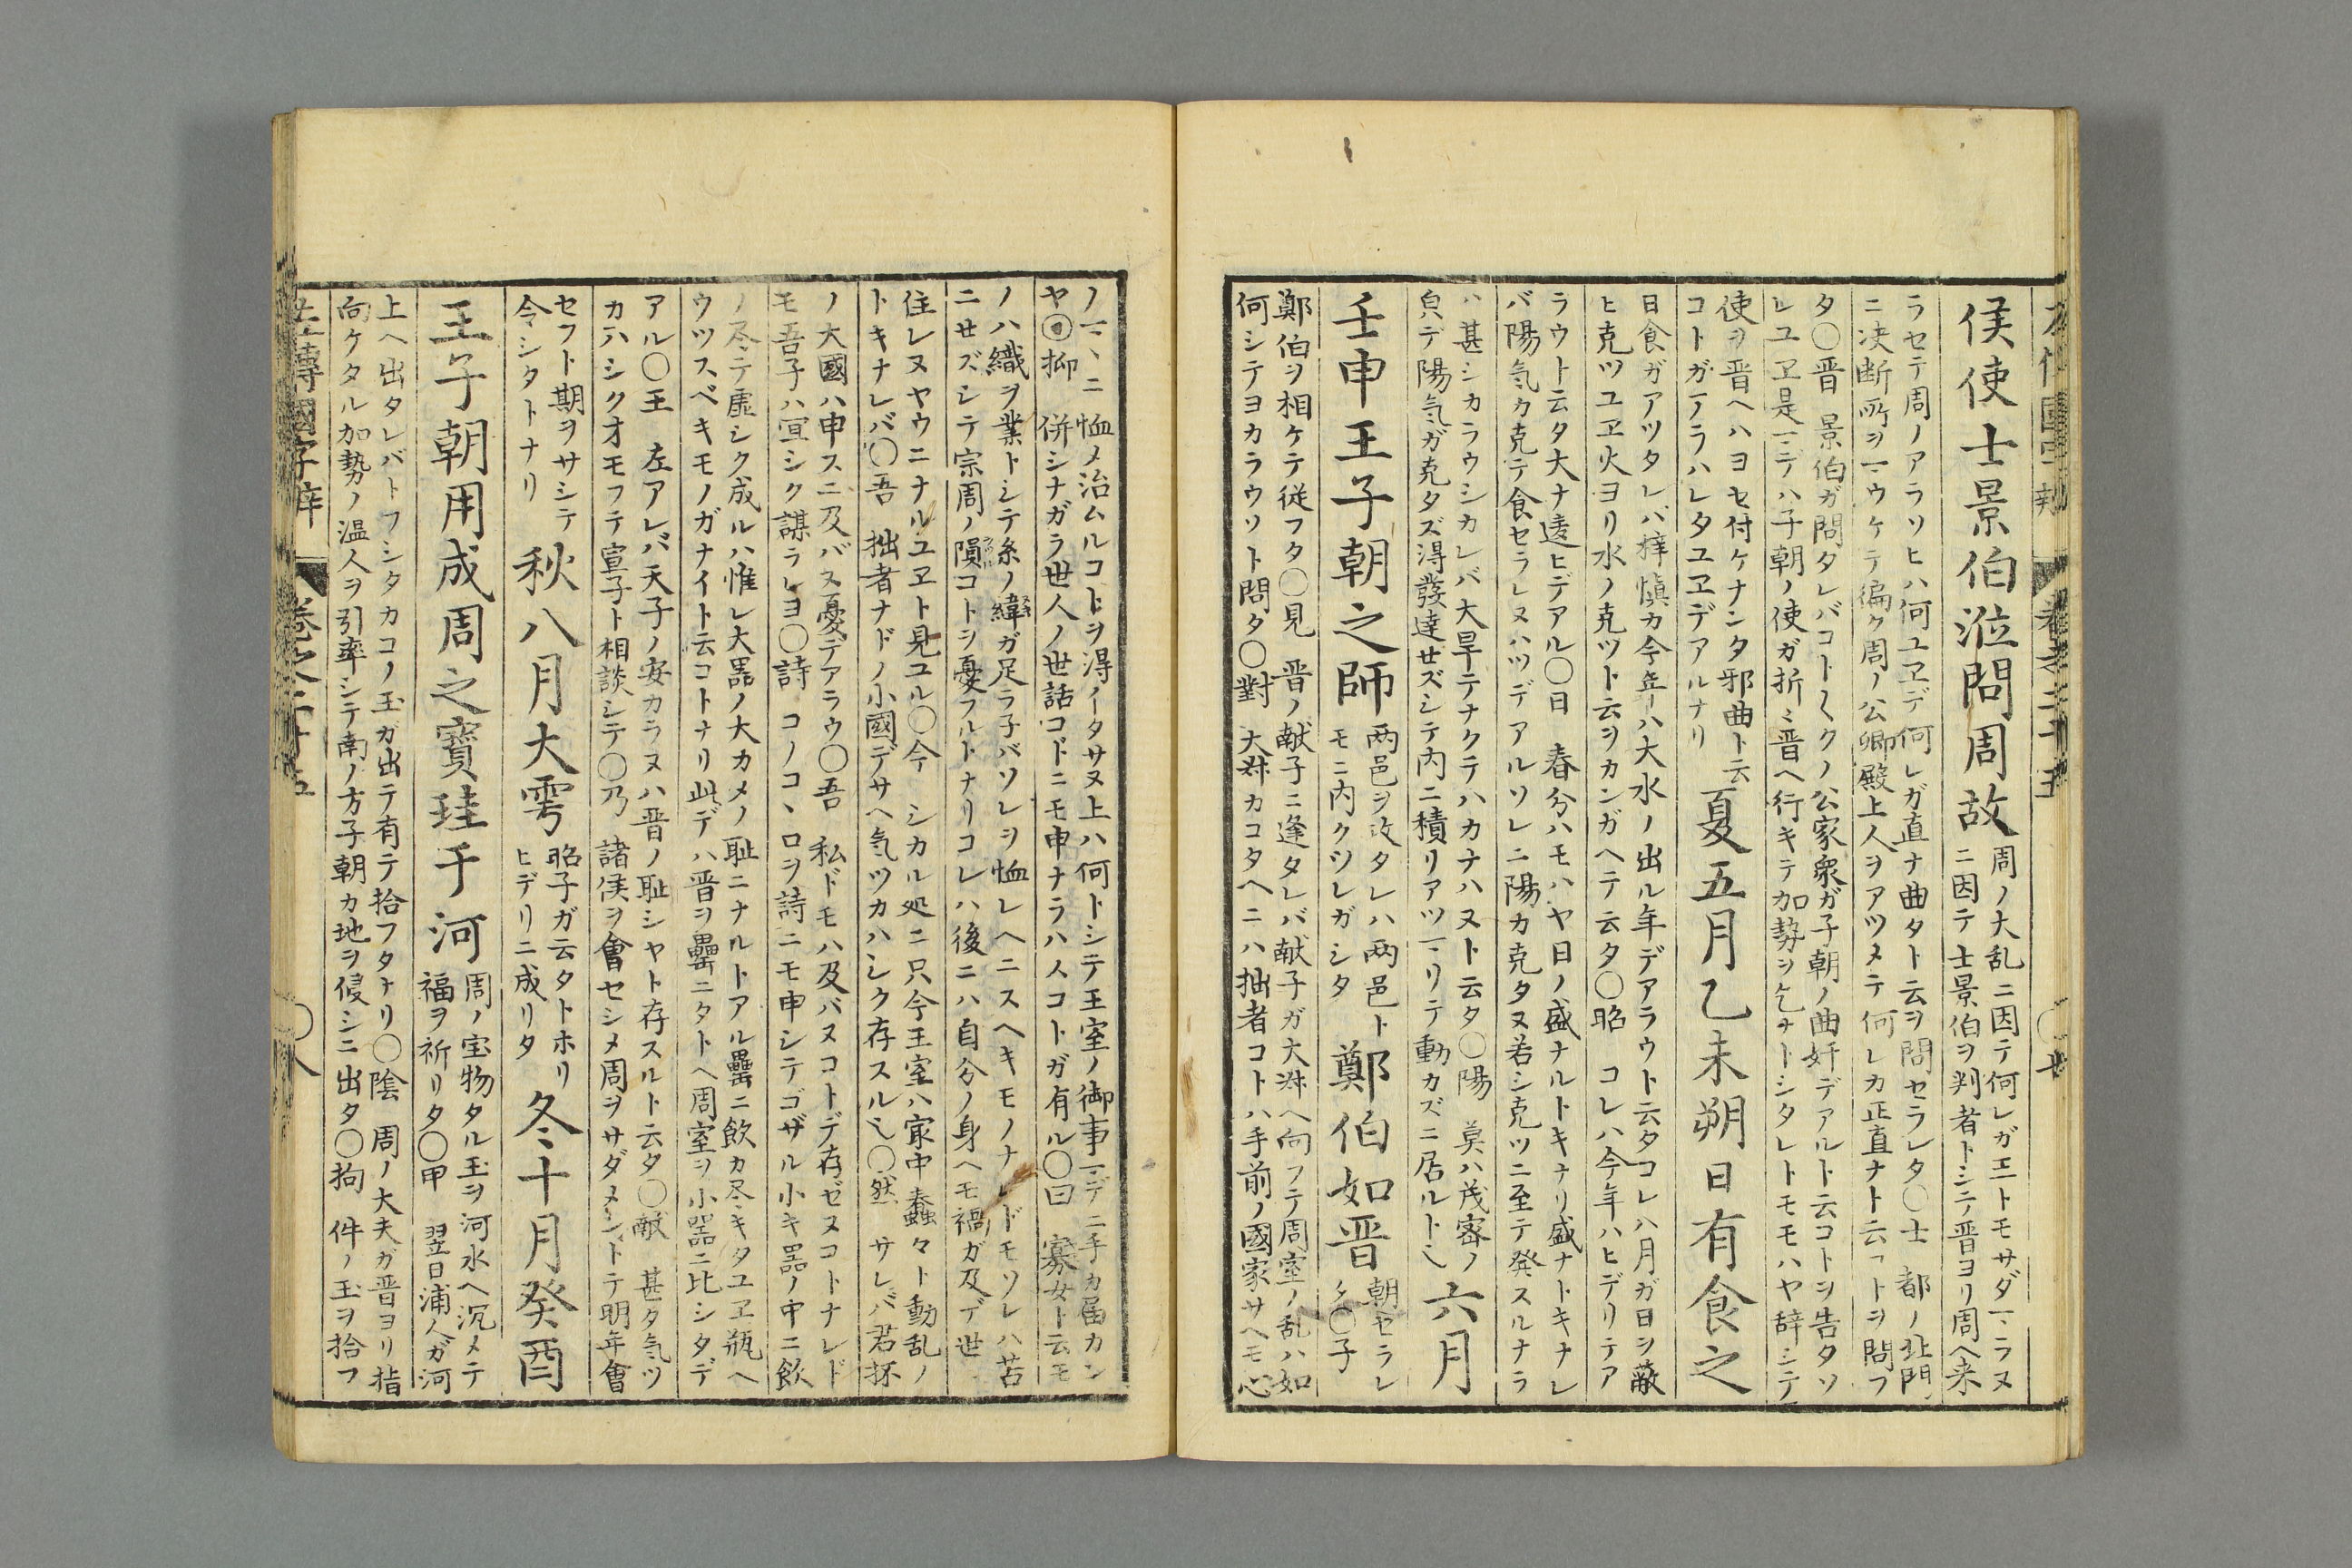 侯使士景伯涖問周故
周ノ大乱ニ因テ何レガ王トモサダマラヌ
ニ因テ士景伯ヲ判者トシテ晋ヨリ周ヘ来
ラセテ周ノアラソヒハ何ユヱデ何レガ直ナ曲タト云ヲ問セラレタ〇士 都ノ北門
ニ决断所ヲマウケテ徧ク周ノ公卿殿上人ヲアツメテ何レカ正直ナト云フトヲ問フ
タ〇晋 景伯ガ問タレバコト〱クノ公家衆ガ子朝ノ曲奸デアルト云コトヲ告タソ
レユヱ是マデハ子朝ノ使ガ折ミ晋ヘ行キテ加勢ヲ乞ナトシタレトモモハヤ辞シテ
使ヲ晋ヘハヨセ付ケナンタ邪曲ト云
コトガアラハレタユヱデアルナリ
夏五月乙未朔日有食之
日食ガアツタレバ梓慎カ今年ハ大水ノ出ル年デアラウト云タコレハ月ガ日ヲ蔽
ヒ克ツユヱ火ヨリ水ノ克ツト云ヲカンガヘテ云タ〇昭 コレハ今年ハヒデリテア
ラウト云タ大ナ逺ヒデアル〇日 春分ハモハヤ日ノ盛ナルトキナリ盛ナトキナレ
バ陽気カ克テ食セラレヌハツデアルソレニ陽カ克タヌ若シ克ツニ至テ発スルナラ
ハ甚シカラウシカレバ大旱テナクテハカナハヌト云タ〇陽 莫ハ茂密ノ
貞デ陽気ガ克タズ淂發達せズシテ内ニ積リアツマリテ動カズニ居ルト也
六月
壬申王子朝之師
两邑ヲ攻タレハ两邑ト
モニ内クヅレガシタ
鄭伯如晋
朝セラレ
タ〇子
鄭伯ヲ相ケテ従フタ〇見 晋ノ献子ニ逢タレバ献子ガ大叔ヘ向フテ周室ノ乱ハ如
何シテヨカラウソト問タ〇對 大叔カコタヘニハ拙者コトハ手前ノ國家サヘモ心
ノマヽニ恤メ治ムルコトヲ淂イタサヌ上ハ何トシテ王室ノ御事マデニ手カ届カン
ヤ◉抑 併シナガラ世人ノ世話コトニモ申ナラハスコトガ有ル〇曰 寡女ト云モ
ノハ織ヲ業トシテ糸ノ緯ガ足ラ子バソレヲ恤レヘニスヘキモノナレドモソレハ苦
ニせズシテ宗周ノ隕コトヲ憂フルトナリコレハ後ニハ自分ノ身ヘモ禍ガ及デ世
住レヌヤウニナルユヱト見ユル〇今 シカル処ニ只今王室ハ家中蠢々ト動乱ノ
トキナレバ〇吾 拙者ナドノ小國デサヘ気ツカハシク存スル也〇然 サレバ君抔
ノ大國ハ申スニ及バヌ憂デアラウ〇吾 私ドモハ及バヌコトデ存ゼヌコトナレド
モ吾子ハ宣シク謀ラレヨ〇詩 コノコヽロヲ詩ニモ申シテゴザル小キ器ノ中ニ飲
ノ尽テ虚シク成ルハ惟レ大噐ノ大カメノ耻ニナルトアル罍ニ飲カ尽キタユヱ瓶ヘ
ウツスベキモノガナイト云コトナリ此デハ晋ヲ罍ニタトヘ周室ヲ小噐ニ比シタデ
アル〇王 左アレバ天子ノ安カラヌハ晋ノ耻シヤト存スルト云タ〇献 甚タ気ツ
カハシクオモフテ宣子ト相談シテ〇乃 諸侯ヲ會セシメ周ヲサダメントテ明年會
セフト期ヲサシテ
令シタトナリ
秋八月大雩
昭子ガ云タトホリ
ヒデリニ成リタ
冬十月癸酉
王子朝用成周之寳珪于河
周ノ宝物タル玉ヲ河水ヘ沉メテ
福ヲ祈リタ〇甲 翌日浦人ガ河
上ヘ出タレバトフシタカコノ玉ガ出テ有テ拾フタナリ〇陰 周ノ大夫ガ晋ヨリ指
向ケタル加勢ノ温人ヲ引率シテ南ノ方子朝カ地ヲ侵シニ出タ〇拘 件ノ玉ヲ拾フ
左傳國字辨 巻之二十五 〇八